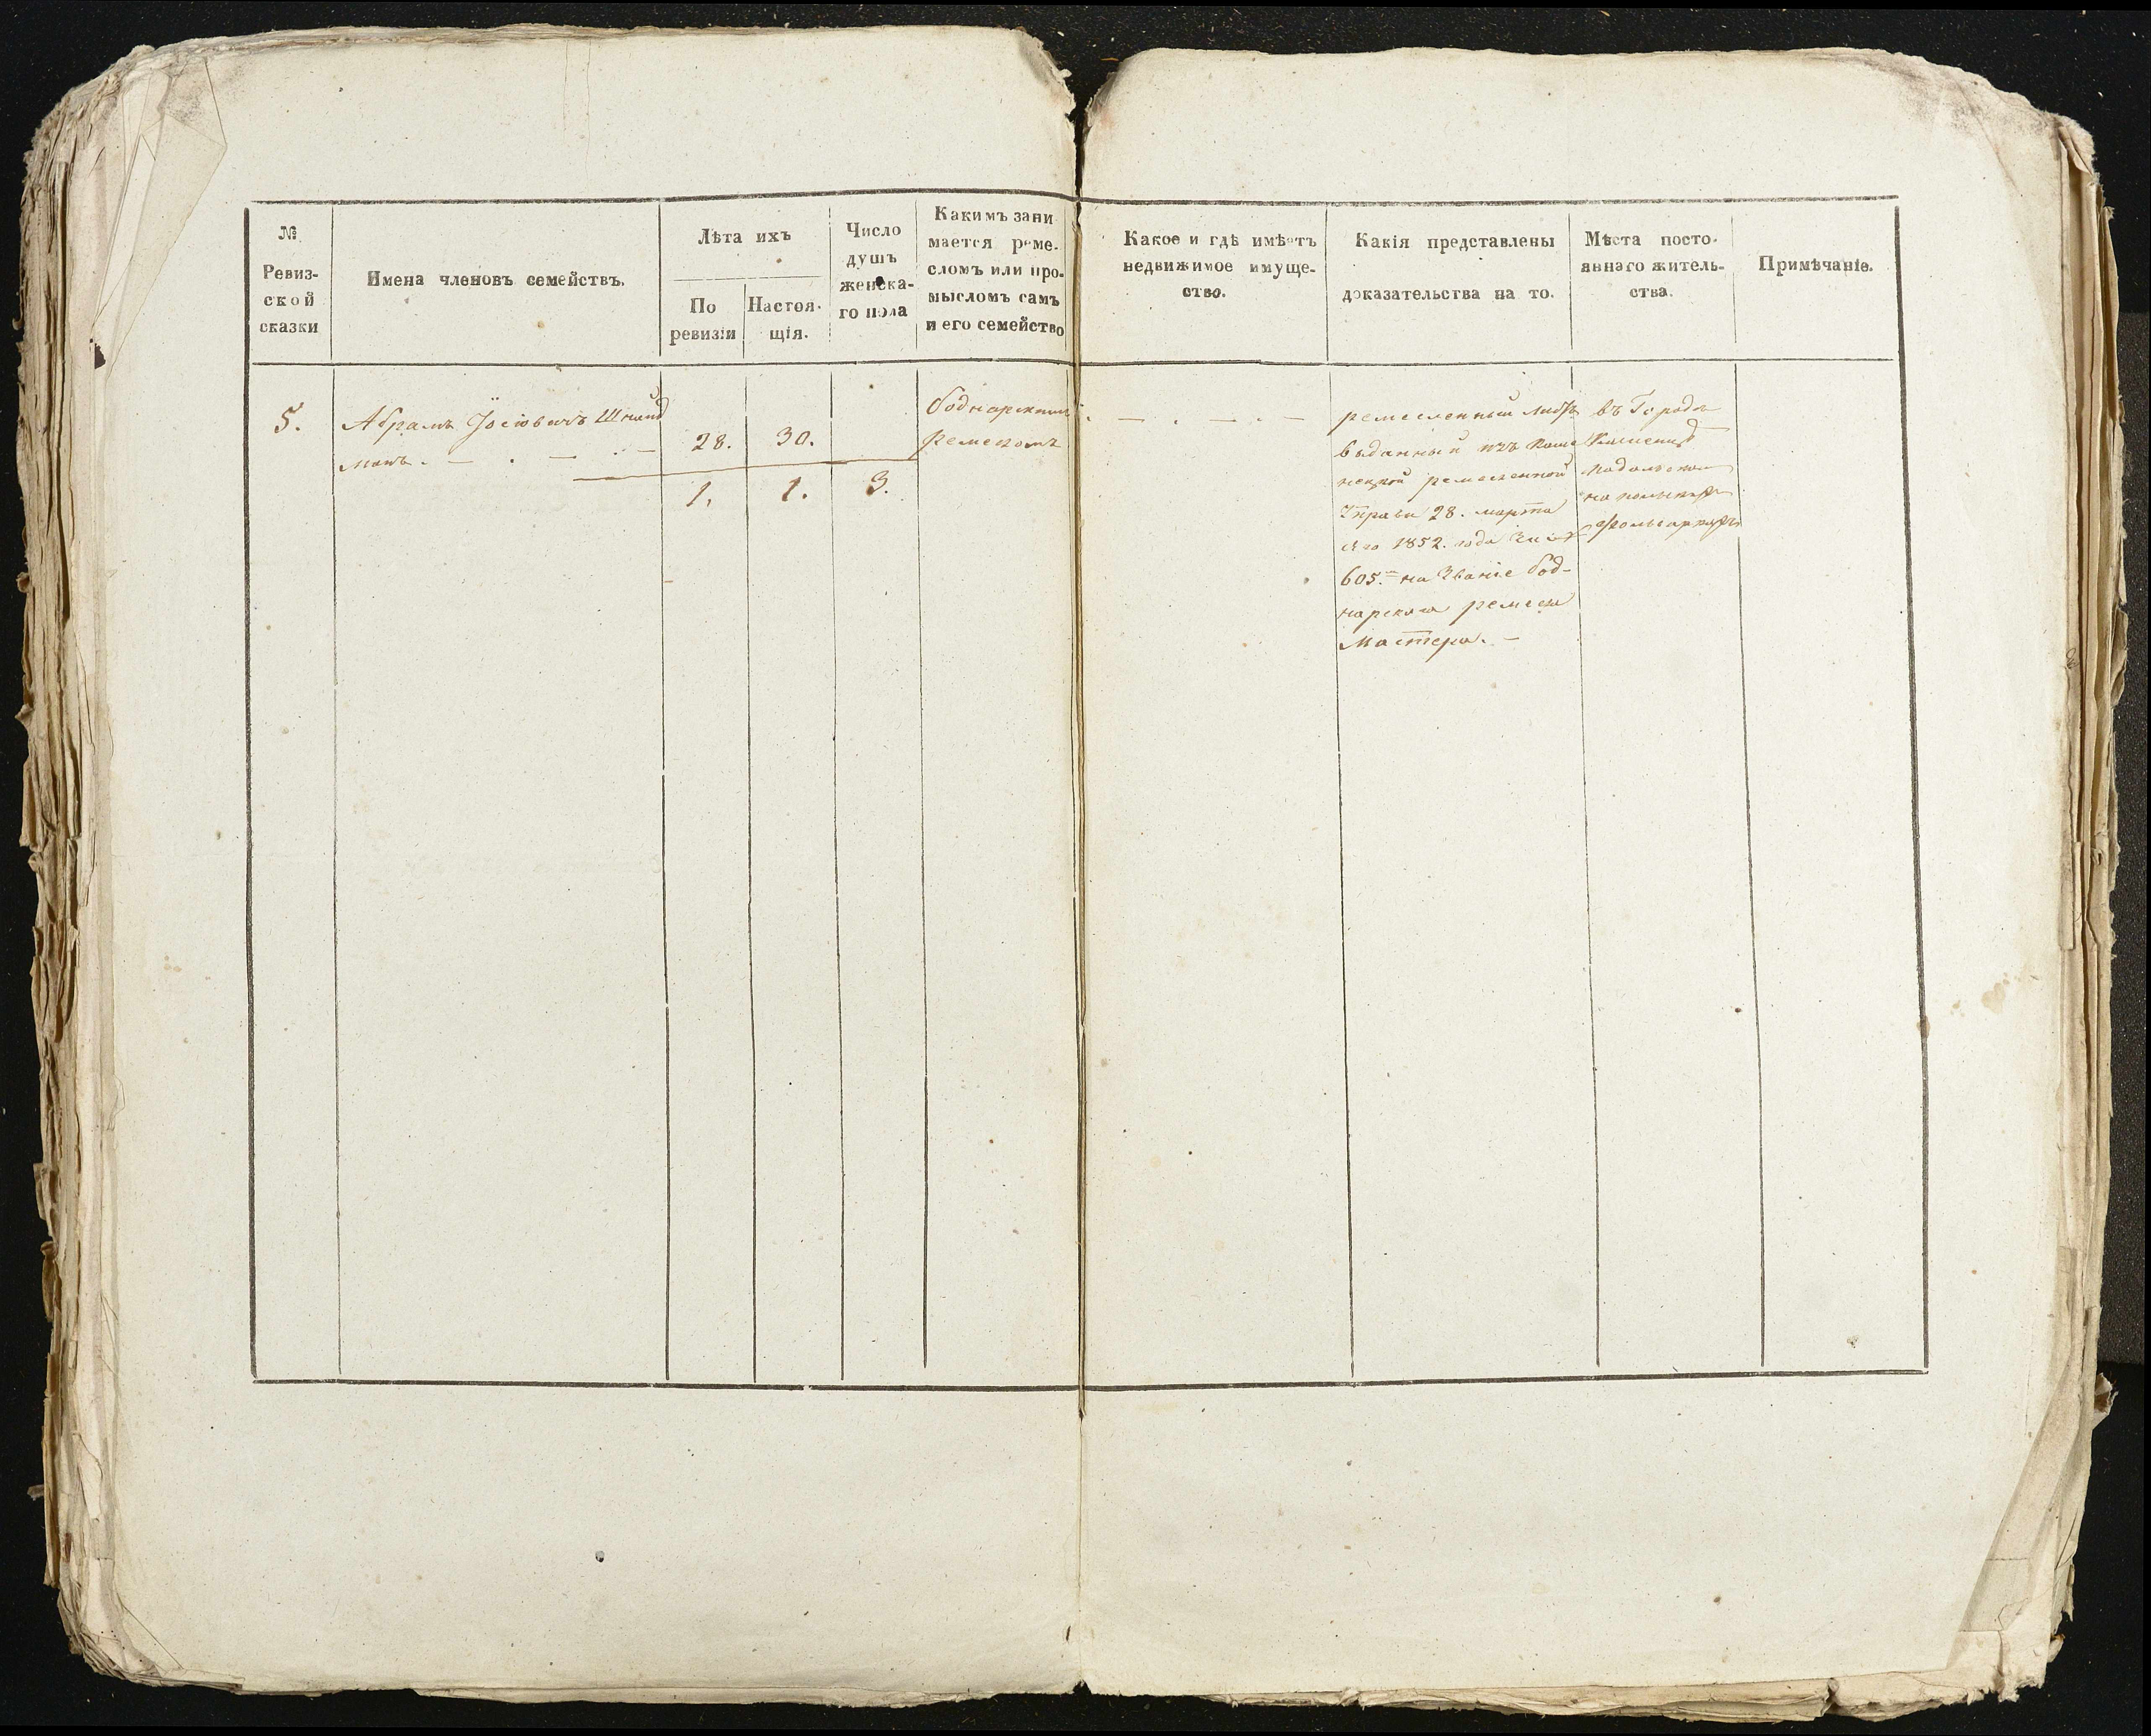 №
Ревиз-
ской
сказки
Имена членовъ семействъ.
Лѣта ихъ
По
ревизіи
Настоя-
щія.
Число
душъ
женска-
го пола
Какимъ зани
мается реме-
сломъ или про-
мысломъ самъ
и его семейство
Какое и гдѣ имѣетъ
недвижимое имуще-
ство.
Какія представлены
доказательства на то.
Мѣста посто-
яннаго житель-
ства.
Примѣчаніе.
5.
Абрамъ Іосіовичъ Шнайд
манъ.
28.
30.
1.
1.
3.
боднарскимъ
ремесломъ
ремесленный
выданный изъ Каме
нецкой ремесленной
Управы 28. марта
сего 1852. года за №
605. на званіе бод-
нарскаго ремесла
Мастера.
въ Городѣ
Каменцѣ
Подольскомъ
на польскихъ
фольваркахъ